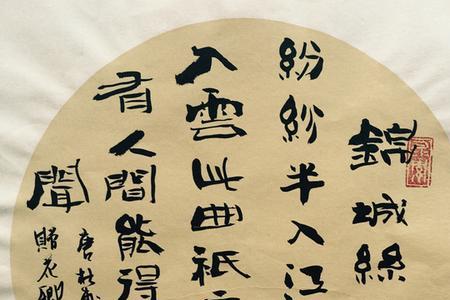 錦城絲
紛紛半入江
入雲此曲祇
有人間能得
聞
唐杜甫
贈花卿